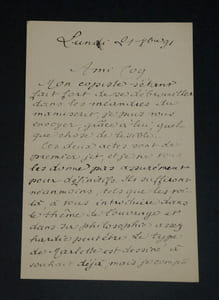 Lundi 21 9bre 91
Ami Roy
Mon copiste s'étant
fait fort de se débrouiller
dans les méandres du
manuscrit je puis vous
envoyer, grâce à lui quel
que chose de lisible.
Ces deux actes sont de
premier jet, et je ne vous
les donne pas assurément
pour définitifs. Ils suffiront
néanmoins, tels que les voi
là à vous introduire dans
le thème de l'ouvrage et
dans sa philosophie assez
hardie peut être. Le type
de Marlotte est dessiné à
souhait déjà, mais je compte